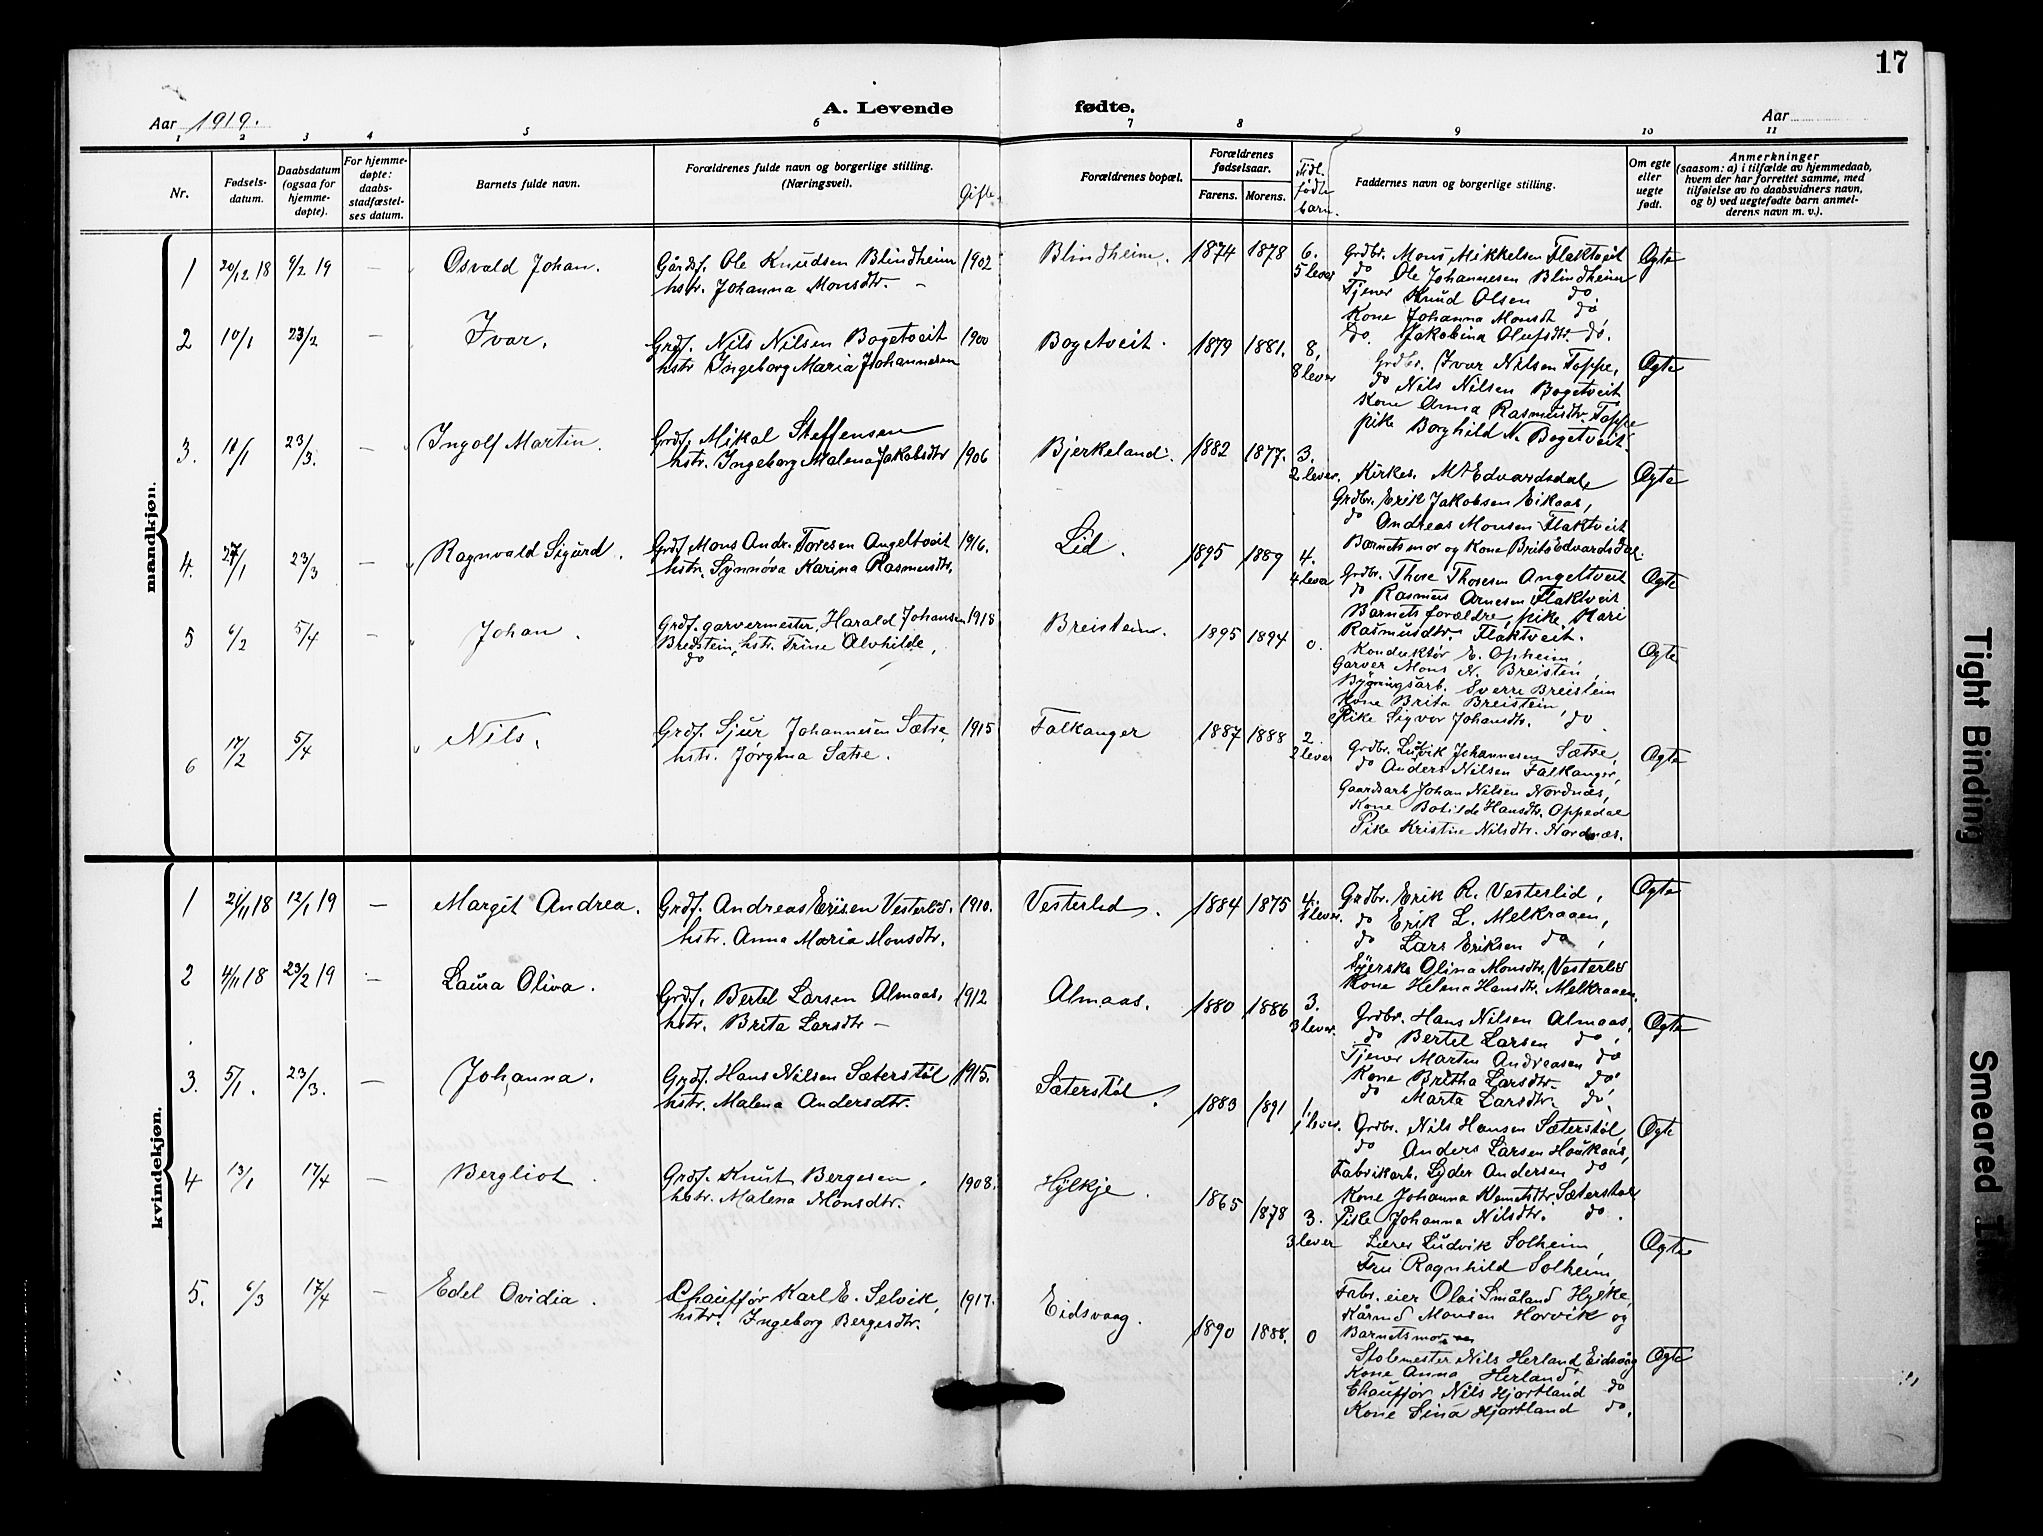 17
A. Levende fødte.
Aar 1919.
Aar
1 2 3 4 5 6 7 8 9 10 11
Nr.
Fødsels-
datum.
Daabsdatum
(ogsaa for
hjemme-
døpte).
For hjemme-
døpte:
daabs-
stadfæstel-
ses datum.
Barnets fulde navn.
Forældrenes fulde navn og borgerlige stilling.
(Næringsvei).
Gifte.
Forældrenes bopæl.
Forældrenes
fødselsaar.
Farens. Morens.
Tidl.
fødte
barn.
Faddernes navn og borgerlige stilling.
Om egte
eller
uegte
født.
Anmerkninger
(saasom: a) i tilfælde av hjemmedaab,
hvem der har forrettet samme, med
tilføielse av to daabsvidners navn,
og b) ved uegtefødte barn anmel-
derens navn m. v.).
mandkjøn.
1 20/12 18 9/2 19 — Osvald Johan.
Gårdsf. Ole Knudsen Blindheim 1902
hstr. Johanna Monsdtr. –
Blindheim. 1874 1878 6.
5 lever
Grdbr. Mons Mikkelsen Flaktveit
do Ole Johannesen Blindheim
Tjener Knud Olsen do
Kone Johanna Monsdt do,
Do. Jakobina Olufsdtr. do.
Ægte
2 10/1 23/2 — Ivar.
Grdf. Nils Nilsen Bogetveit 1900
hstr Ingeborg Maria Johannesen
Bogetveit. 1879 1881. 8,
8 lever
Grdbr. Ivar Nilsen Toppe,
do Nils Nilsen Bogetveit
Kone Anna Rasmusdtr. Toppe
pike Borghild N. Bogetveit.
Ægte
3. 11/1 23/3. — Ingolf Martin.
Grdf. Mikal Steffensen
hstr. Ingeborg Malena Jakobsdtr 1906
Bjerkeland. 1882 1877. 3.
2 lever.
Kirkes. M Edvardsdale
Grdbr. Erik Jakobsen Eikaas,
do Andreas Monsen Flaktveit
Barnets mor og Kone Brits Edvardsdal.
Ægte
4. 27/1 23/3 — Ragnvald Sigurd.
Grdf Mons Andr. Toresen Angeltveit 1916.
hstr. Synnova Karina Rasmusdtr.
Lid. 1895 1889 4.
4 lever
Grdbr. Thore Thoresen Angeltveit
do Rasmus Arnesen Flaktveit
Barnets forældre, pike, Mari
Rasmusdtr. Flaktveit.
Ægte
5 6/2 5/4 — Johan.
Grdf. garvermester, Harald Johansen 1918
Bredstein, hstr. Trine Alvhilde,
do
Breistein. 1895 1894 0.
Konduktør E. Opheim,
Garver Mons N. Breistein,
Bygningsarb. Sverre Breistein
Kone Brita Breistein,
Pike Sigvor Johansdtr. do
Ægte
6 17/2 5/4 Nils.
Grdf. Sjur Johannesen Sætre, 1915
hstr. Jørgina Sætre.
Falkanger 1887 1888 2
2 lever
Grdbr. Ludvik Johannesen Sætre,
do Anders Nilsen Falkanger,
Gaardsarb Johan Nilsen Nordnæs,
Kone Botilde Hansdtr. Oppedal
Pike Kristine Nilsdtr. Nordnæs.
Ægte
kvindekjøn.
1 21/11 18 12/1 19 — Margit Andrea.
Grdf. Andreas Erisen Vesterlid. 1910.
hstr. Anna Maria Monsdtr.
Vesterlid. 1884 1875 4.
lever.
Grdbr. Erik R. Vesterlid,
do Erik L. Melkraaen,
do Lars Eriksen do,
Syerske Olina Monsdtr. Vesterlid
Kone Helena Hansdtr. Melkraaen.
Ægte
2 4/11 18 23/2 19 — Laura Oliva.
Grdf. Bertel Larsen Almaas, 1912
hstr. Brita Larsdtr –
Almaas. 1880 1886 3.
3 lever.
Grdbr. Hans Nilsen Almaas,
do Bertel Larsen do,
Tjener Martin Andreasen do
Kone Britha Larsdtr. do
do Marta Larsdtr. do.
Ægte
3. 5/1. 23/3. — Johanna.
Grdf. Hans Nilsen Sæterstøl 1915.
hstr. Malena Andersdtr.
Sæterstøl. 1883 1891 1.
1 lever.
Grdbr. Nils Hansen Sæterstøl,
do Anders Larsen Haukaas,
Fabrikarb. Lyder Andersen do
Kone Johanna Klemetsdtr. Sæterstøl
Pike Johanna Nilsdtr. do.
Ægte
4 13/1 17/4 — Bergliot.
Grdf. Knut Bergesen, 1908.
hstr. Malena Monsdtr.
Hylkje. 1865 1878 3.
3 lever
Lærer Ludvik Solheim,
Fru Ragnhild Solheim,
Fabr. eier Olai Småland Hylkje,
Kårmd Monsen Horvik og
Barnets mor
Ægte
5. 6/3 17/4 — Edel Ovidia.
Chauffør Karl E. Selvik, 1917.
hstr. Ingeborg Bergesdtr.
Eidsvaag. 1890 1888. 0
Stolemester Nils Herland, Eidsvåg
Kone Anna Herland,
Chauffør Nils Hjortland do
Kone Sina Hjortland do.
Ægte
Tight Binding
Smeared